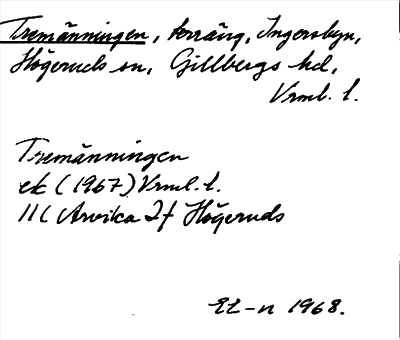 Tremänningen, terräng, Ingersbyn,
Högeruds sn, Gillbergs hd,
Vrml. l.
Tremänningen
ek (1967) Vrml. l.
11C Arvika 2f Högeruds
EL-n 1968.